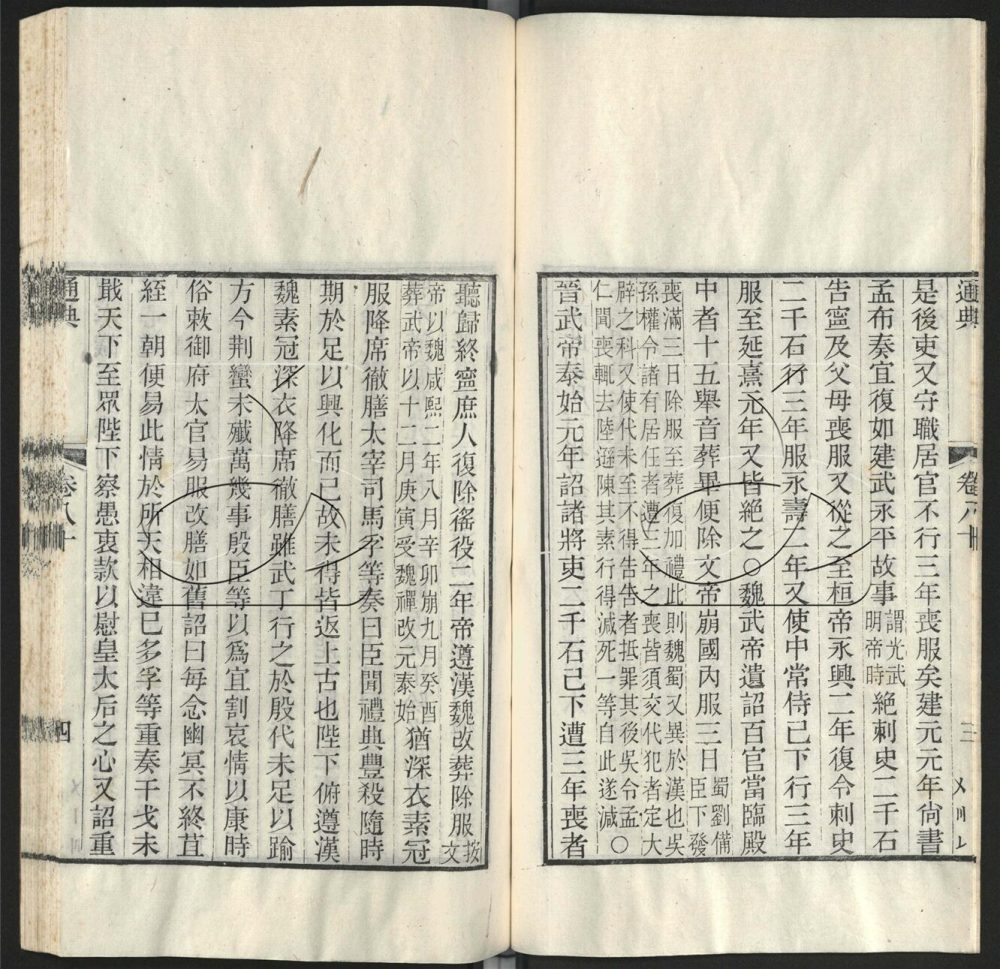 通典
卷八十
三
是後吏又守職居官不行三年喪服矣建元元年尚書
孟布奏宜復如建武永平故事謂光武明帝時絶刺史二千石
告寧及父母喪服又從之至桓帝永興二年復令刺史
二千石行三年服永壽二年又使中常侍已下行三年
服至延熹元年又皆絶之〇魏武帝遺詔百官當臨殿
中者十五舉音葬畢便除文帝崩國內服三日蜀劉備臣下發
喪滿三日除服至葬復加禮此則魏蜀又異於漢也吳
孫權令諸有居任者遭三年之喪皆須交代犯者定大
辟之科又使代未至不得告告者抵罪其後吳令孟
仁聞喪輒去陸遜陳其素行得減死一等自此遂減〇
晉武帝泰始元年詔諸將吏二千石已下遭三年喪者
聽歸終寧庶人復除徭役二年帝遵漢魏改葬除服按文
帝以魏咸熙二年八月辛卯崩九月癸酉
葬武帝以十二月庚寅受魏禪改元泰始猶深衣素冠
服降席徹膳太宰司馬孚等奏曰臣聞禮典豐殺隨時
期於足以興化而已故未得皆返上古也陛下俯遵漢
魏素冠深衣降席徹膳雖武丁行之於殷代未足以踰
方今荆蠻未殲萬幾事殷臣等以爲宜割哀情以康時
俗敕御府太官易服改膳如舊詔曰每念幽冥不終苴
絰一朝便易此情於所天相違已多孚等重奏干戈未
戢天下至眾陛下察愚衷款以慰皇太后之心又詔重
通典
卷八十
四